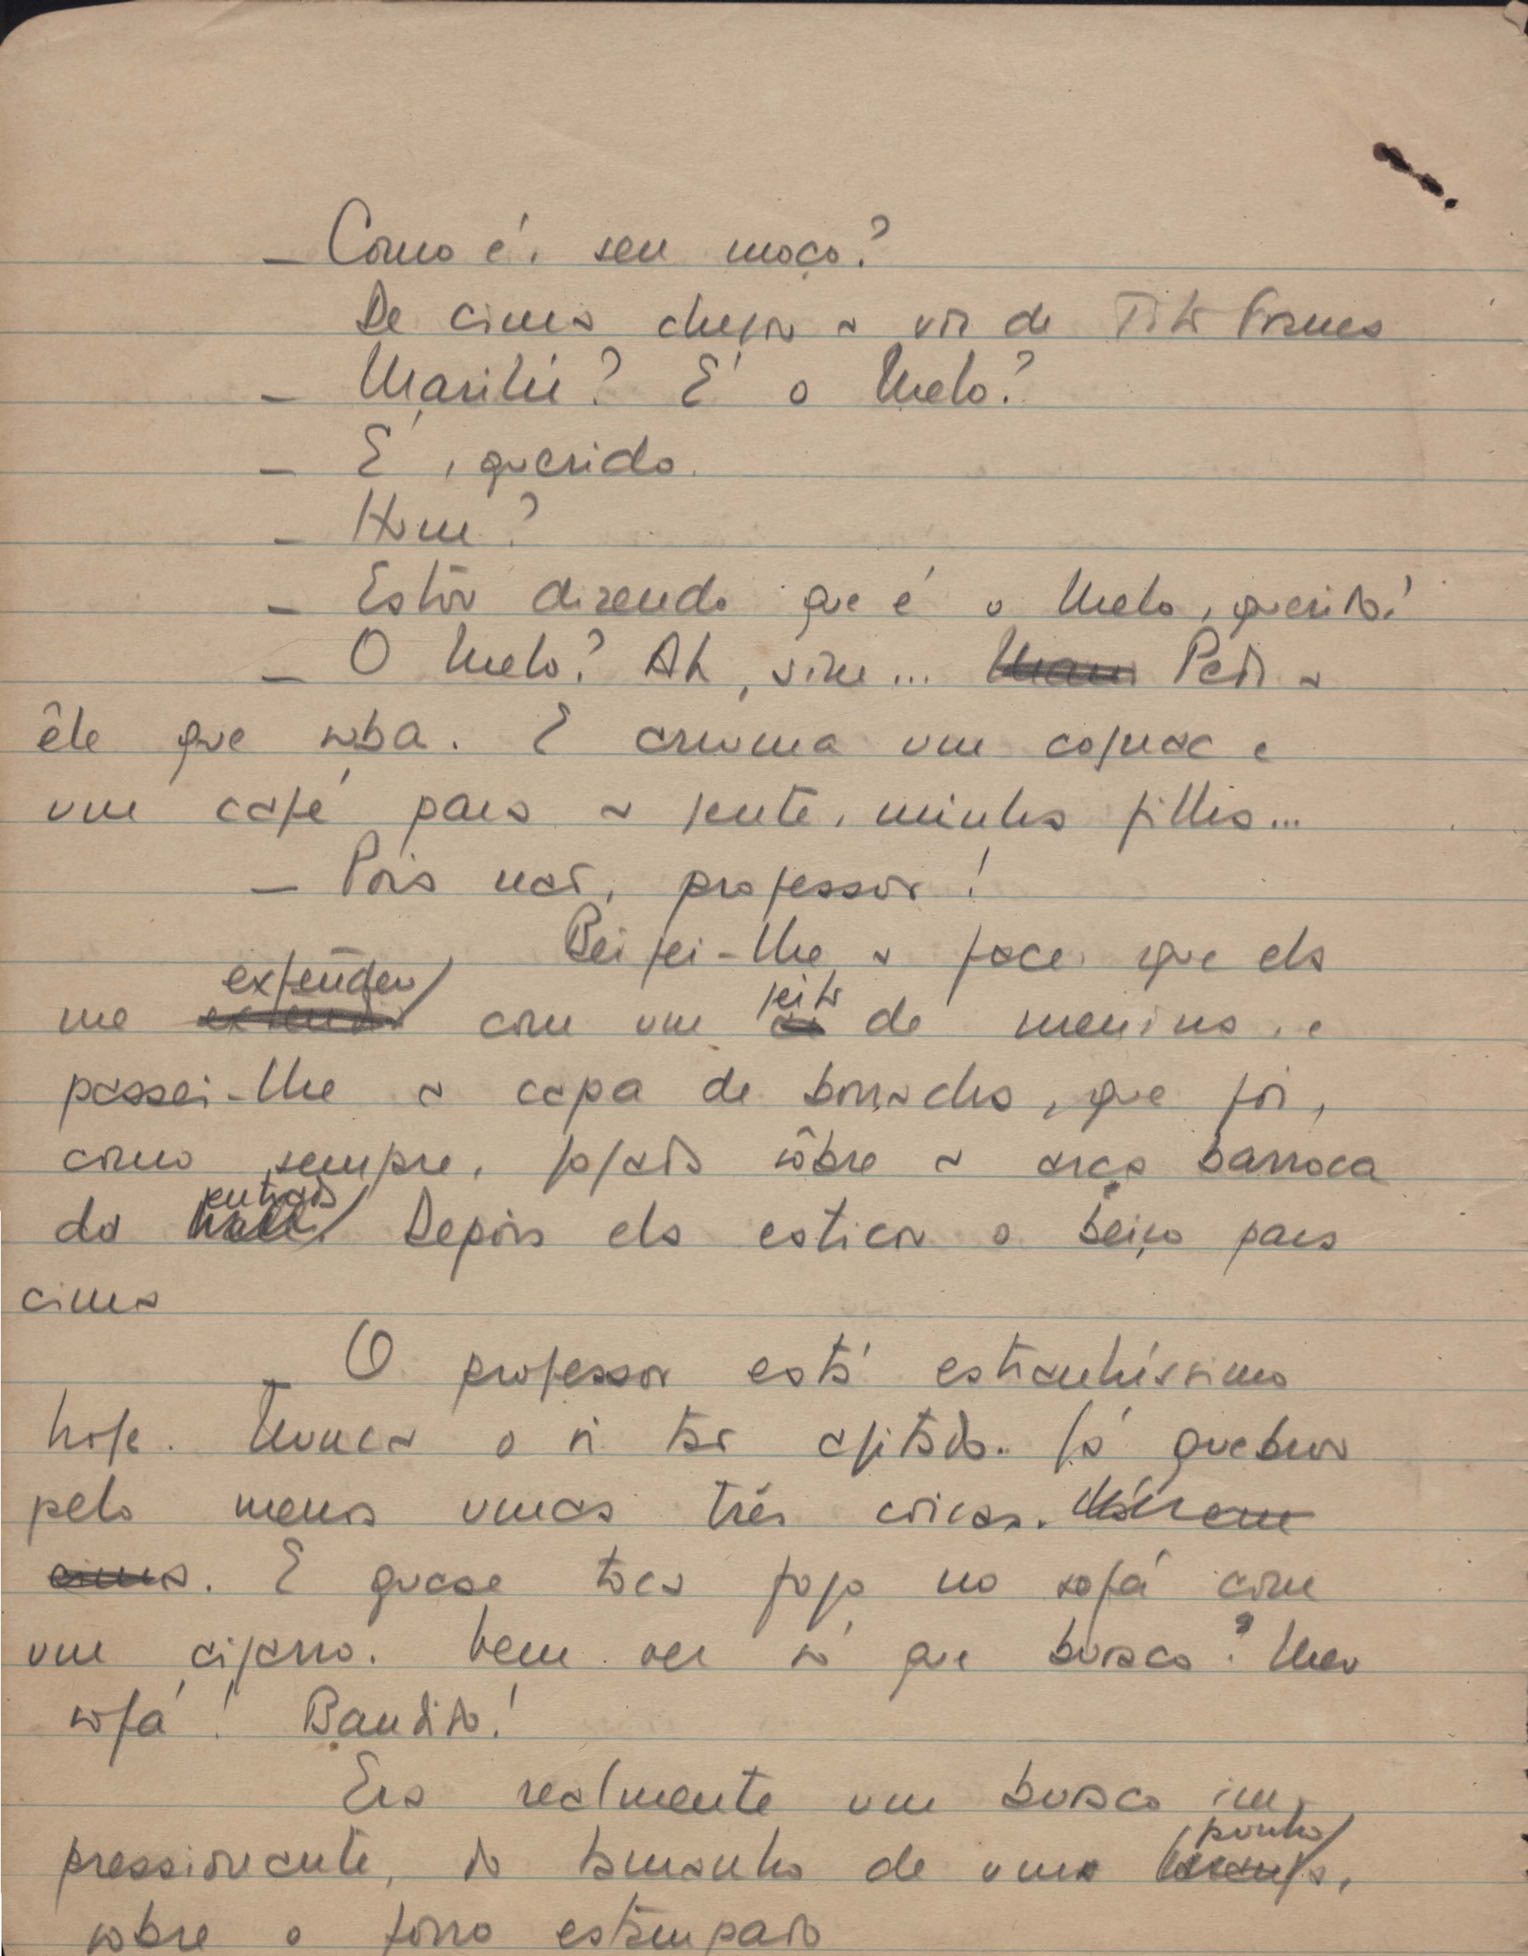 — Como é, seu moço?
De cima chegou a voz de Tito
— Marilú? É o Melo?
— É, querido.
— Hum?
— Estou dizendo que é o Melo, querido!
— O Melo? Ah, sim... Pede a
êle que suba. E arruma um cognac e
um café para a gente, minha filha...
— Pois não, professor!
Beijei-lhe a face, que ela
estendeu
me com um jeito de menina, e
passei-lhe a capa de borracha, que foi,
como sempre, jogada sôbre a arca barroca
da entrada. Depois ela esticou o beiço para
cima
— O professor está estranhíssimo
hoje. Nunca o vi tão agitado. Já quebrou
pelo menos umas três coisas.
E quase toca fogo no sofá com
um cigarro. Vem ver só que buraco? Meu
sofá! Bandido!
Era realmente um buraco im-
pressionante, do tamanho de um punho,
sobre o forro estampado